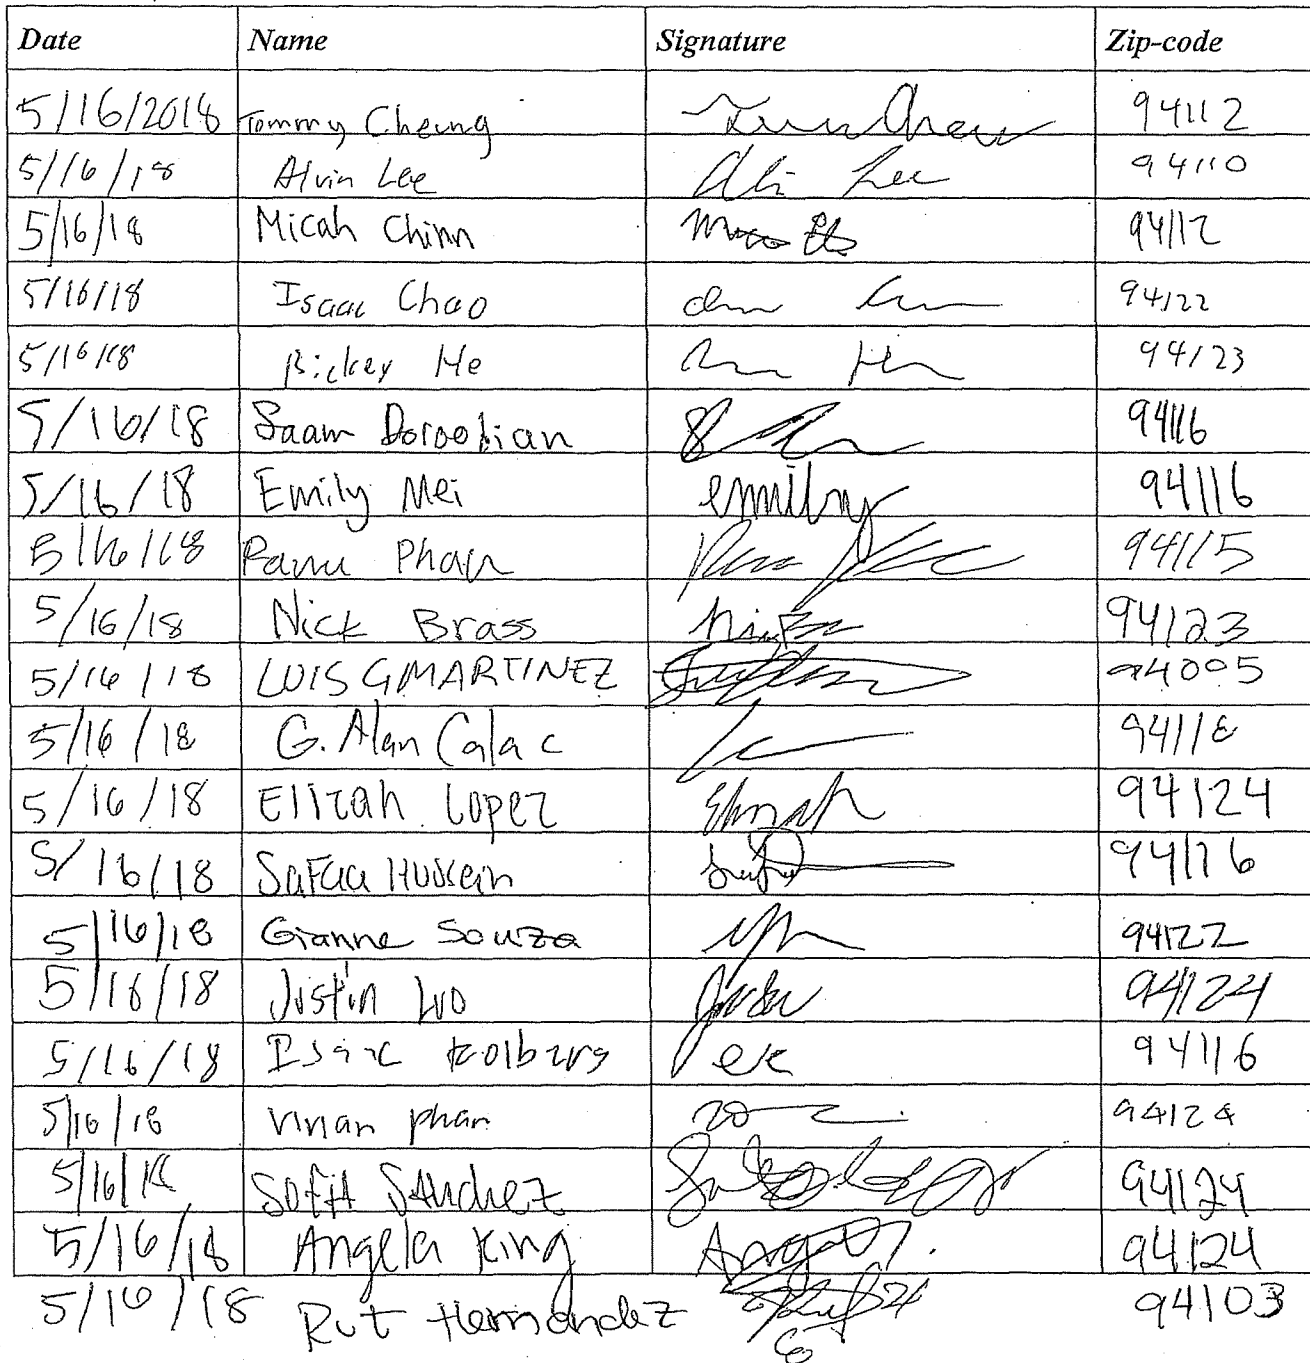 Date Name Signature Zip-code
5/16/2018 Tommy Cheung 94112
5/16/18 Alvin Lee 94110
5/16/18 Micah Chinn 94112
5/16/18 Isaac Chao 94122
5/16/18 Rickey He 94123
5/16/18 Saam Doroobian 94116
5/16/18 Emily Mei emily 94116
5/16/18 Phan 94115
5/16/18 Nick Brass 94123
5/16/18 LUIS G MARTINEZ 94005
5/16/18 G. Alan Calac 94118
5/16/18 Elizah Lopez 94124
5/16/18 Safaa Hussein 94116
5/16/18 Gianne Souza 94122
5/16/18 Justin Luo 94124
5/16/18 Isaac Kolberg 94116
5/16/18 Vivian phan 94124
5/16/18 SOFIA SANchez 94124
5/16/18 Angela King 94124
5/16/18 Rut Hernandez 94103